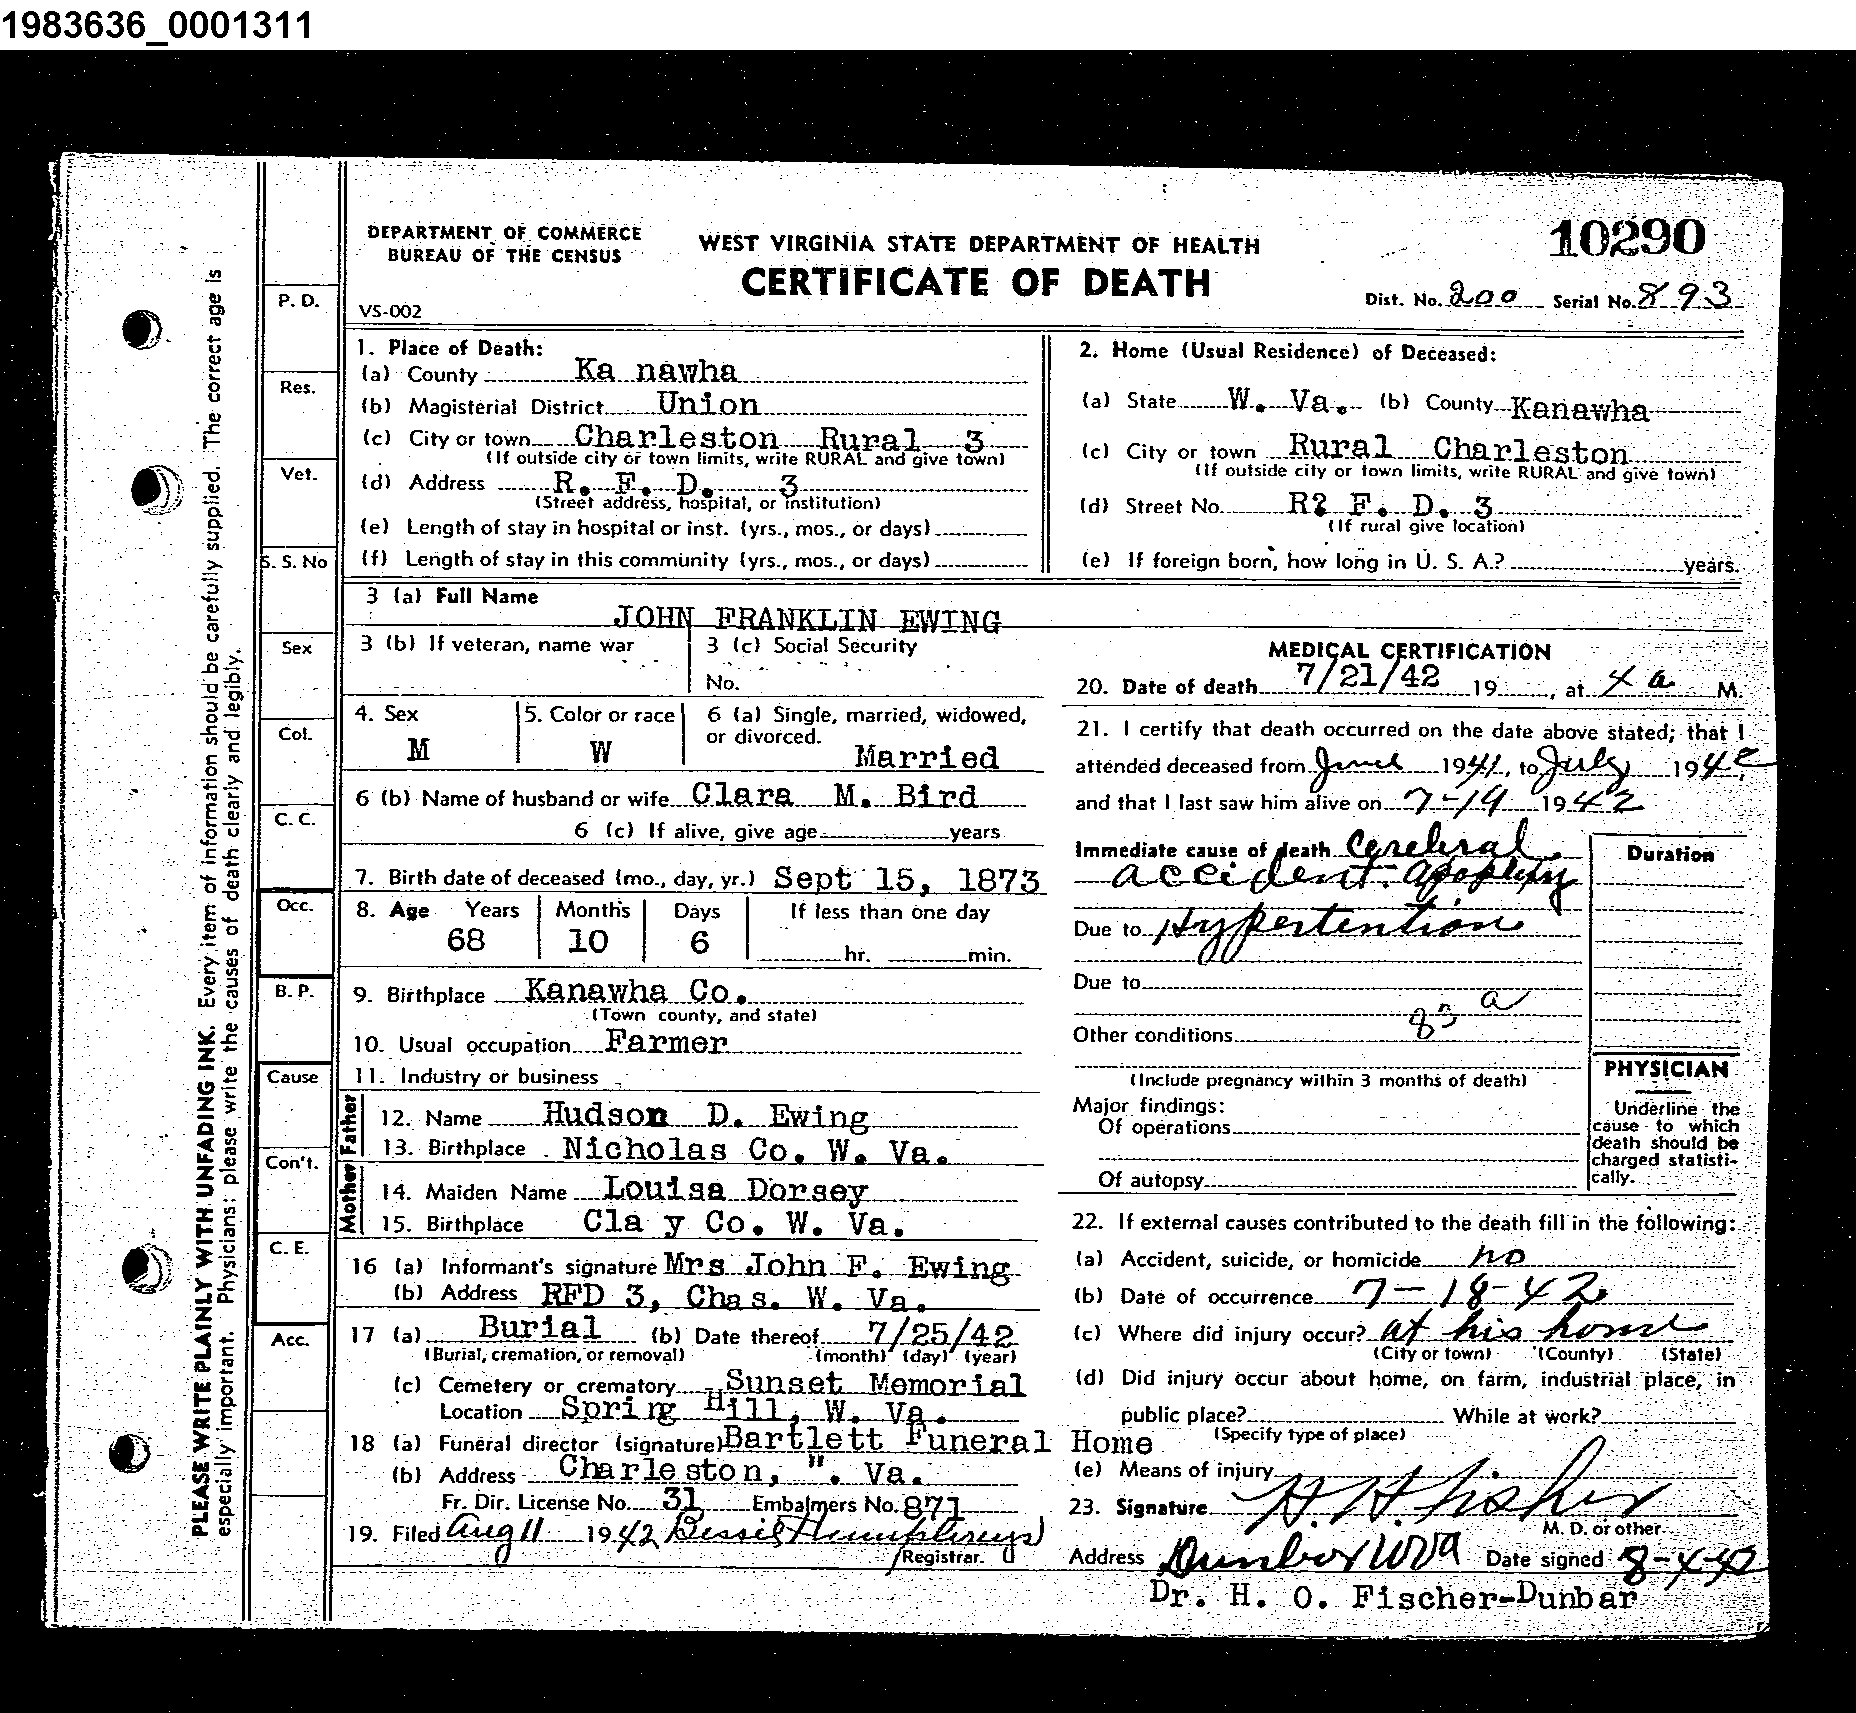 1983636_0001311
DEPARTMENT OF COMMERCE
BUREAU OF THE CENSUS
VS-002
WEST VIRGINIA STATE DEPARTMENT OF HEALTH
CERTIFICATE OF DEATH
10290
Dist. No. 200 Serial No. 893
PLEASE WRITE PLAINLY WITH UNFADING INK. Every item of information should be carefully supplied. The correct age is
especially important. Physicians: please write the causes of death clearly and legibly.
P. D.
Res.
Vet.
S. S. No
Sex
Col.
C. C.
Occ.
B. P.
Cause
Con't.
C. E.
Acc.
1. Place of Death:
(a) County Ka nawha
(b) Magisterial District Union
(c) City or town Charleston Rural 3
(If outside city or town limits, write RURAL and give town)
(d) Address R. F. D. 3
(Street address, hospital, or institution)
(e) Length of stay in hospital or inst. (yrs., mos., or days)
(f) Length of stay in this community (yrs., mos., or days)
2. Home (Usual Residence) of Deceased:
(a) State W. Va. (b) County Kanawha
(c) City or town Rural Charleston
(If outside city or town limits, write RURAL and give town)
(d) Street No. R? F. D. 3
(If rural give location)
(e) If foreign born, how long in U. S. A.? years.
3 (a) Full Name
JOHN FRANKLIN EWING
3 (b) If veteran, name war
3 (c) Social Security
No.
4. Sex
M
5. Color or race
W
6 (a) Single, married, widowed,
or divorced.
Married
6 (b) Name of husband or wife Clara M. Bird
6 (c) If alive, give age years
7. Birth date of deceased (mo., day, yr.) Sept 15, 1873
8. Age Years Months Days If less than one day
68 10 6 hr. min.
9. Birthplace Kanawha Co.
(Town county, and state)
10. Usual occupation Farmer
11. Industry or business
Father
12. Name Hudson D. Ewing
13. Birthplace Nicholas Co. W. Va.
Mother
14. Maiden Name Louisa Dorsey
15. Birthplace Cla y Co. W. Va.
16 (a) Informant's signature Mrs John F. Ewing
(b) Address RFD 3, Chas. W. Va.
17 (a) Burial (b) Date thereof 7/25/42
(Burial, cremation, or removal) (month) (day) (year)
(c) Cemetery or crematory Sunset Memorial
Location Spring Hill, W. Va.
18 (a) Funeral director (signature) Bartlett Funeral Home
(b) Address Charleston, ". Va.
Fr. Dir. License No. 31 Embalmers No. 871
19. Filed Aug 11 1942 Bessie Humphreys
Registrar.
MEDICAL CERTIFICATION
20. Date of death 7/21/42 19 , at 4 a M.
21. I certify that death occurred on the date above stated; that I
attended deceased from June 1941, to July 1942
and that I last saw him alive on 7-19 1942
Immediate cause of death Cerebral
accident. apoplexy
Due to Hypertention
Due to
83 a
Other conditions
(Include pregnancy within 3 months of death)
Major findings:
Of operations
Of autopsy
Duration
PHYSICIAN
Underline the
cause to which
death should be
charged statisti-
cally.
22. If external causes contributed to the death fill in the following:
(a) Accident, suicide, or homicide no
(b) Date of occurrence 7-18-42
(c) Where did injury occur? at his home
(City or town) (County) (State)
(d) Did injury occur about home, on farm, industrial place, in
public place? While at work?
(Specify type of place)
(e) Means of injury
23. Signature H. H. Fisher
M. D. or other
Address Dunbar WVa Date signed 8-4-42
Dr. H. O. Fischer-Dunbar